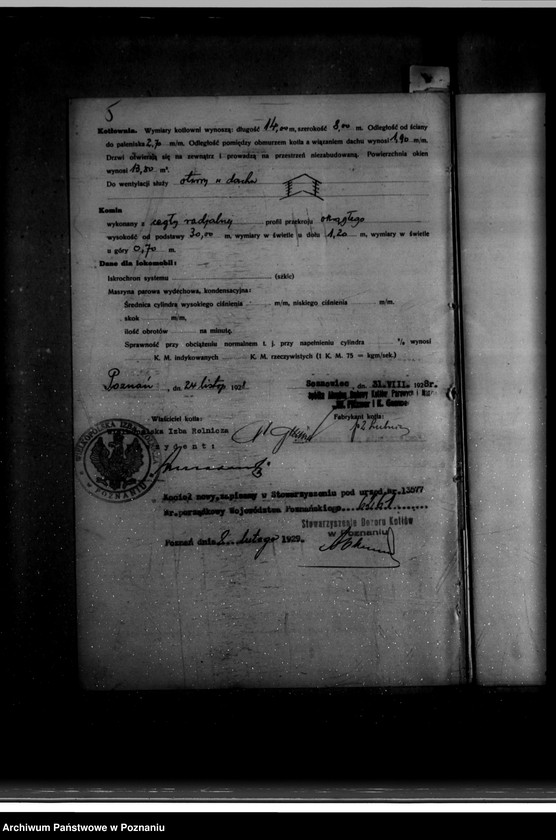 5
Kotłownia. Wymiary kotłowni wynoszą: długość 14,00 m, szerokość 8,00 m. Odległość od ściany
do paleniska 2,70 m/m. Odległość pomiędzy obmurzem kotła a wiązaniem dachu wynosi 1,90 m/m.
Drzwi otwierają się na zewnątrz i prowadzą na przestrzeń niezabudowaną. Powierzchnia okien
wynosi 13,80 m².
Do wentylacji służy otwory w dachu
Komin
wykonany z cegły radjalnej profil przekroju okrągłego
wysokość od podstawy 30,00 m, wymiary w świetle u dołu 1,20 m, wymiary w świetle
u góry 0,70 m.
Dane dla lokomobili:
Iskrochron systemu (szkic)
Maszyna parowa wydechowa, kondensacyjna:
Średnica cylindra wysokiego ciśnienia m/m, niskiego ciśnienia m/m.
skok m/m,
ilość obrotów na minutę.
Sprawność przy obciążeniu normalnem t. j. przy napełnieniu cylindra % wynosi
K. M. indykowanych K. M. rzeczywistych (1 K. M. 75 = kgm/sek.)
Poznań, dn. 24 listop. 192
Sosnowiec, dn. 31.VIII. 1928r.
Właściciel kotła:
Fabrykant kotła:
Izba Rolnicza
POZNANIU
Kocioł nowy, zapisany w Stowarzyszeniu pod urzęd. Nr. 13577
Nr. porządkowy Województwa Poznańskiego
Stowarzyszenie Dozoru Kotłów
w Poznaniu
Poznań dnia 2. lutego 1929.
Archiwum Państwowe w Poznaniu